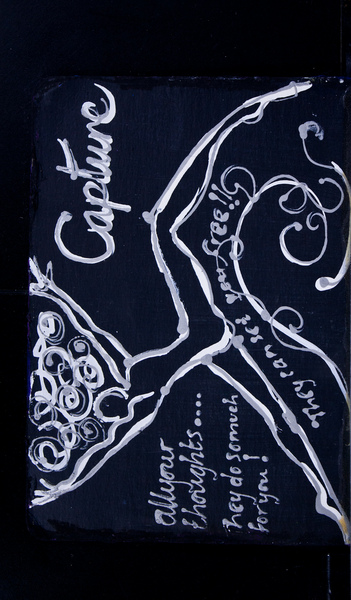 Capture
all your
thoughts....
hey do so much
for you!
They can set you free!!